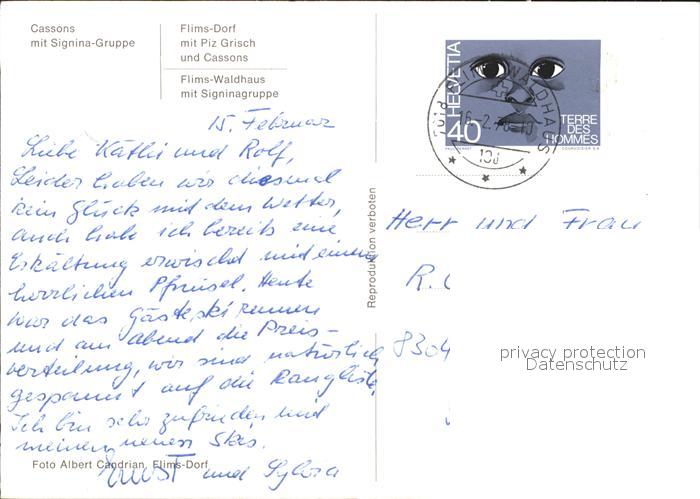 Cassons
mit Signina-Gruppe
Flims-Dorf
mit Piz Grisch
und Cassons
Flims-Waldhaus
mit Signinagruppe
15. Februar
Liebe Käthi und Rolf,
Leider haben wir diesmal
kein Glück mit dem Wetter,
auch habe ich bereits eine
Erkältung erwischt mit einem
herrlichen Pfnüsel. Heute
war das Gästeskirennen
und am abend die Preis-
verteilung, wir sind natürlich
gespannt auf die Rangliste.
Ich bin sehr zufrieden mit
meinen neuen Skis.
Ernst und Sylvia
Foto Albert Candrian, Flims-Dorf
Reproduktion verboten
HELVETIA
40
TERRE
DES
HOMMES
COURVOISIER S.A.
7018 FLIMS WALDHAUS
Herr und Frau
R.
8304
privacy protection
Datenschutz